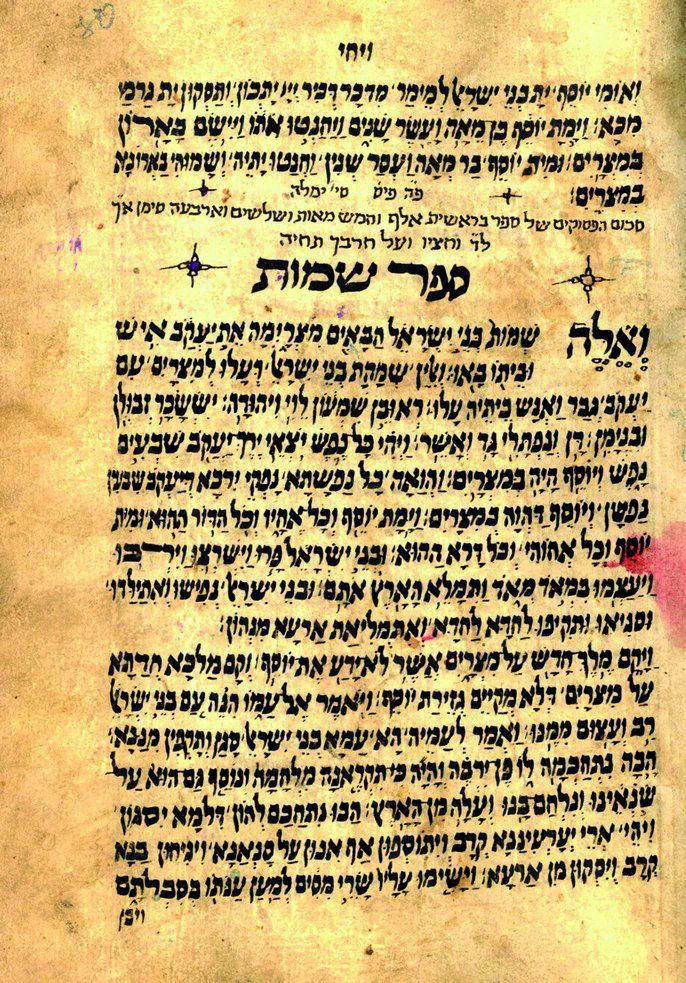 ויחי
ואומי יוסף ית בני ישראל למימר מדכר דכיר ייי יתכון ותסקון ית גרמי
מכא׃ וימת יוסף בן מאה ועשר שנים ויחנטו אתו ויישם בארון
במצרים׃ ומית יוסף בר מאה ועסר שנין וחנטו יתיה ושמוהי בארונא
במצרים׃
סכום הפסוקים של ספר בראשית אלף וחמש מאות ושלשים וארבעה סימן אך
לד וחציו ועל חרבך תחיה
ספר שמות
ואלה שמות בני ישראל הבאים מצרימה את יעקב איש
וביתו באו׃ ואלין שמהת בני ישראל דעלו למצרים עם
יעקב גבר ואנש ביתיה עלו׃ ראובן שמעון לוי ויהודה׃ יששכר זבולן
ובנימן׃ דן ונפתלי גד ואשר׃ ויהי כל נפש יצאי ירך יעקב שבעים
נפש ויוסף היה במצרים׃ והואה כל נפשתא נפקי ירכא דיעקב שבעין
נפשן ויוסף דהוה במצרים׃ וימת יוסף וכל אחיו וכל הדור ההוא׃ ומית
יוסף וכל אחוהי וכל דרא ההוא׃ ובני ישראל פרו וישרצו וירבו
ויעצמו במאד מאד ותמלא הארץ אתם׃ ובני ישראל נפישו ואתילדו
וסגיאו ותקיפו לחדא לחדא ואתמליאת ארעא מנהון׃
ויקם מלך חדש על מצרים אשר לא ידע את יוסף׃ וקם מלכא חדתא
על מצרים דלא מקיים גזירת יוסף׃ ויאמר אל עמו הנה עם בני ישראל
רב ועצום ממנו׃ ואמר לעמיה הא עמא בני ישראל סגן ותקפין מננא׃
הבה נתחכמה לו פן ירבה והיה כי תקראנה מלחמה ונוסף גם הוא על
שנאינו ונלחם בנו ועלה מן הארץ׃ הבו נתחכם להון דלמא יסגון
ויהי ארי יערעיננא קרב ויתוספון אף אנון על סנאנא ויגיחון בנא
קרב ויסקון מן ארעא׃ וישימו עליו שרי מסים למען ענתו בסבלתם
ויבן